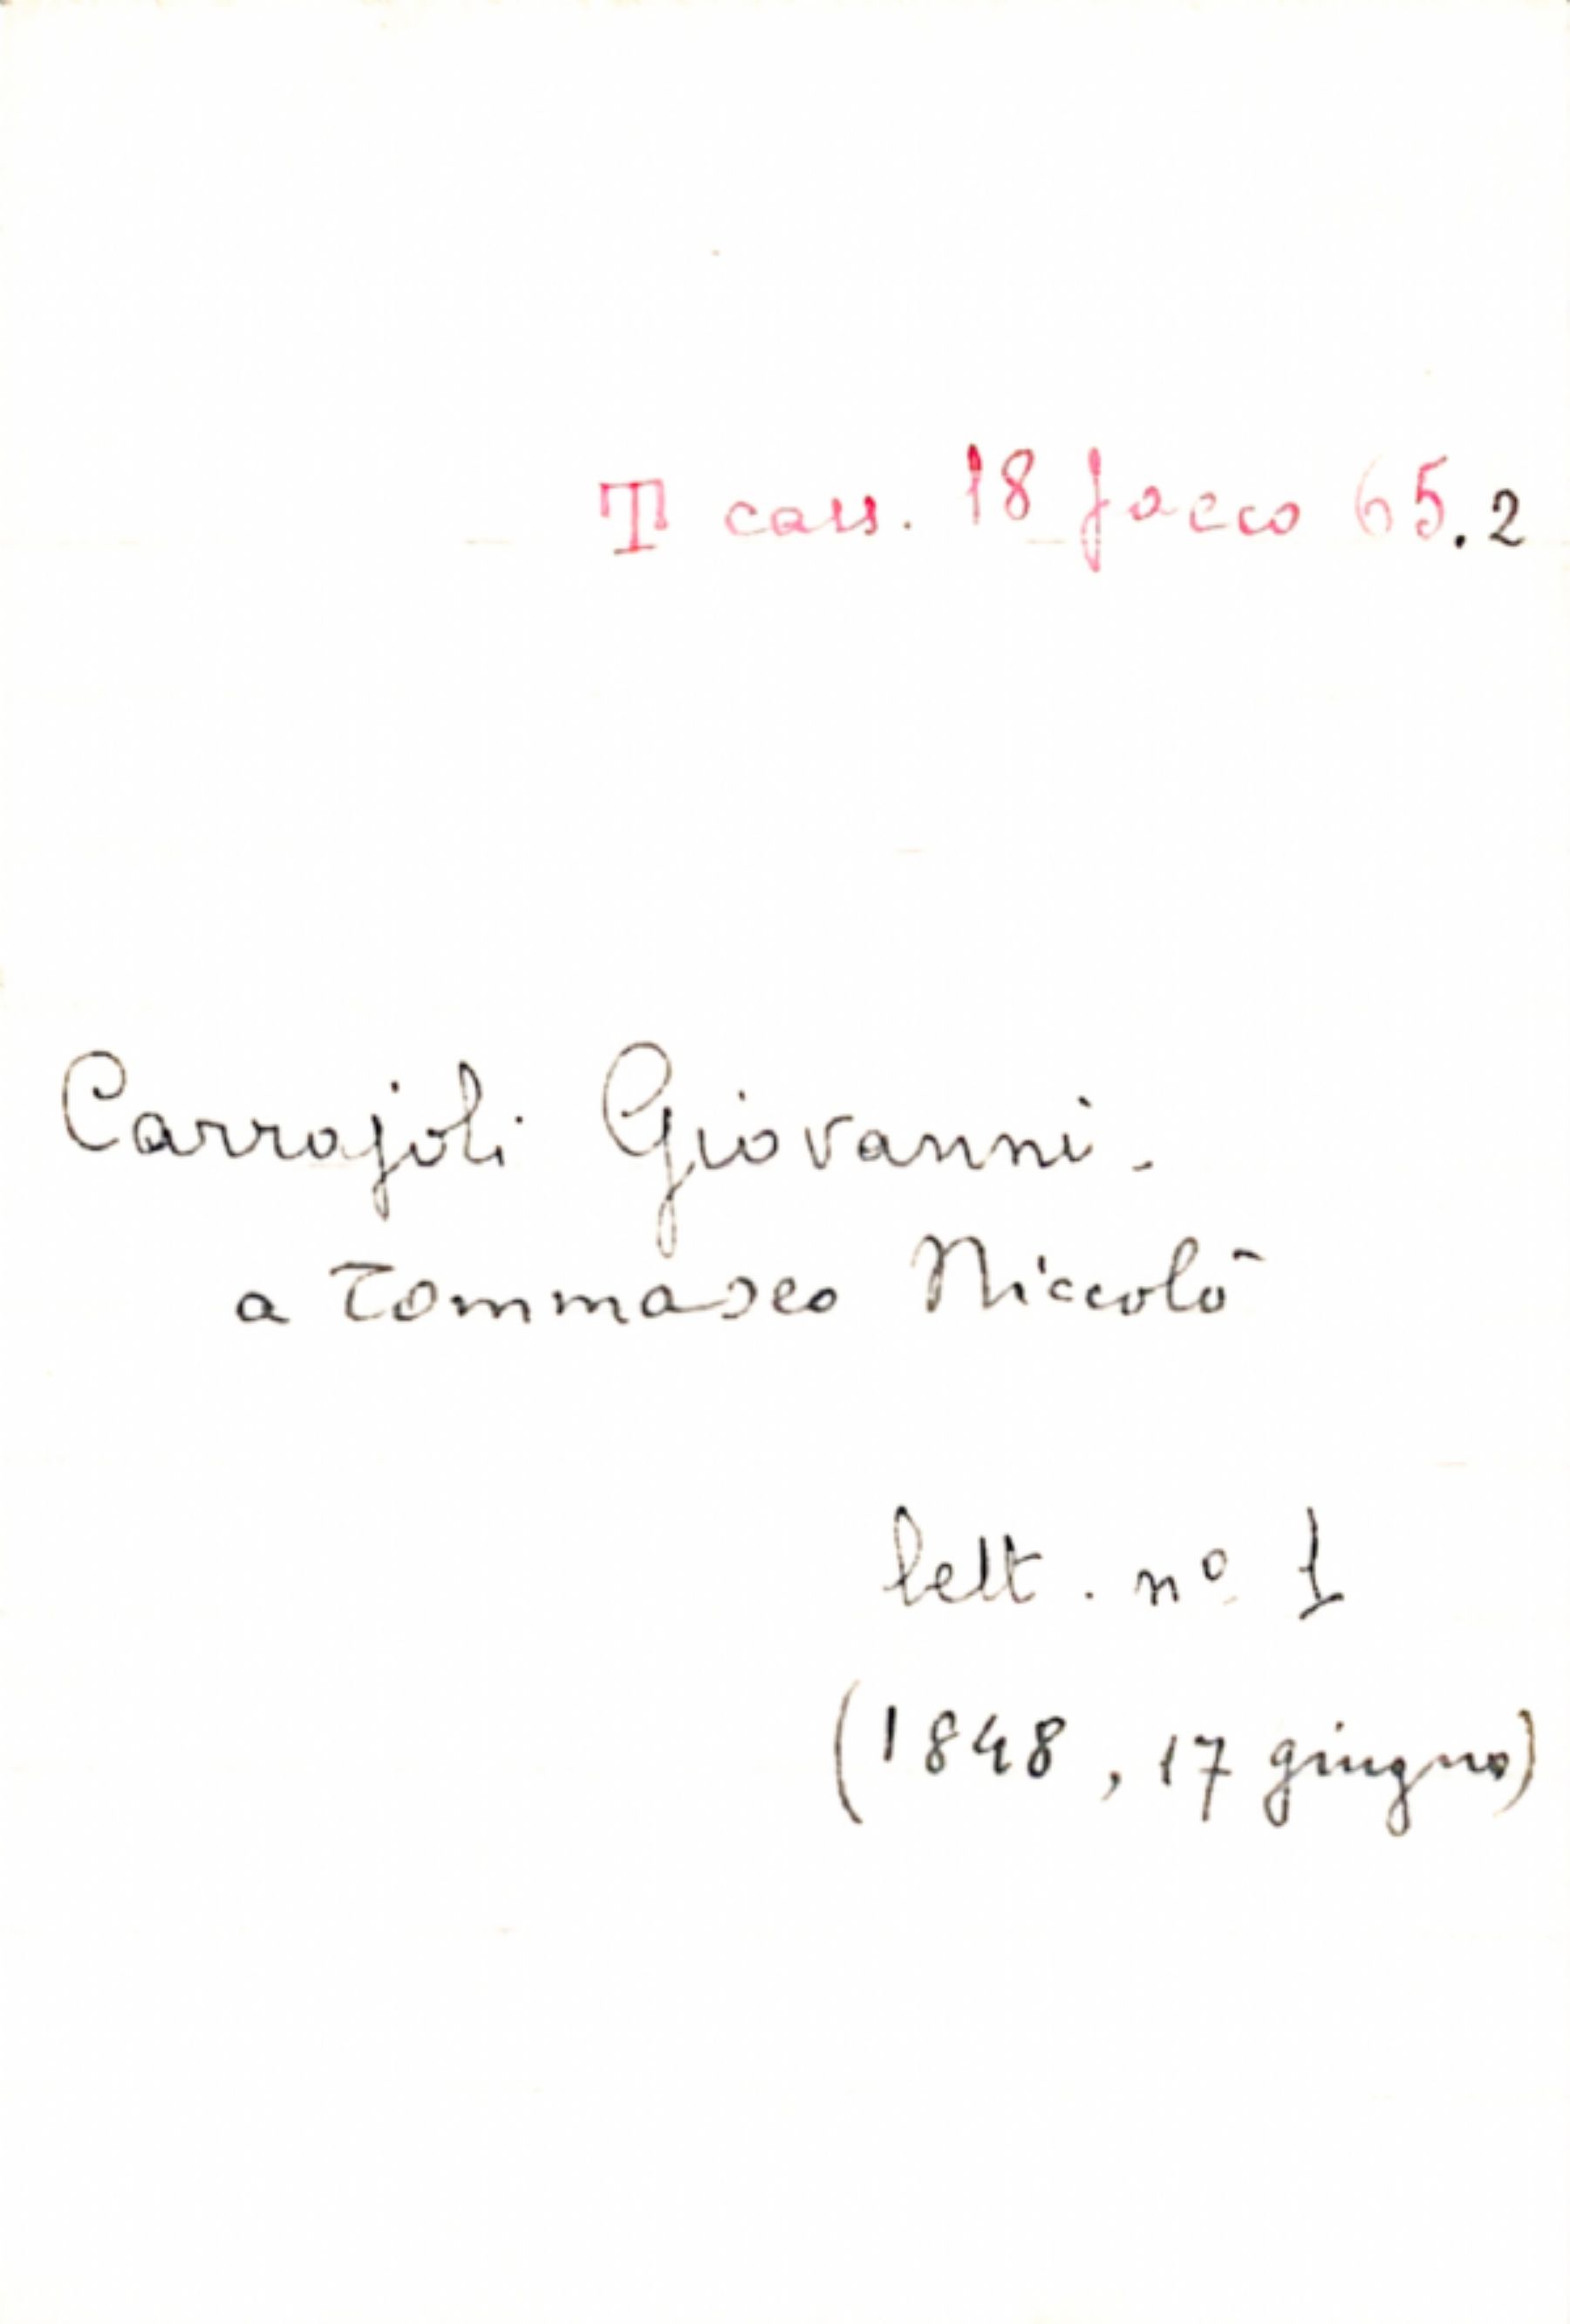 T cass. 18 sacco 65.2
Carrajoli Giovanni.
a Tommaseo Niccolò
lett. nº 1
(1848, 17 giugno)